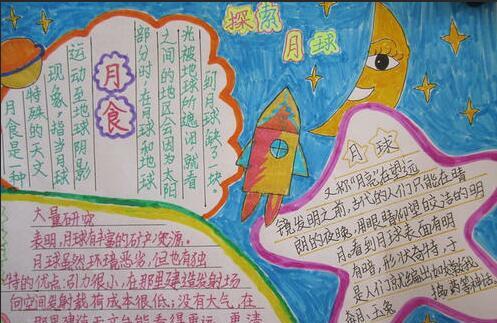 探索
月球
月食
月食是一种
特殊的天文
现象,指当月
运动至地球阴影
部分时,在月球和地球
之间的地区会因为太阳
光被地球所遮闭就看
到月球缺了一块。
月球
又称“月亮”在望远
镜发明之前,古代的人们只能在晴
朗的夜晚,用眼睛仰望皎洁的明
月。看到月球表面有明
有暗,形状奇特,于
是人们就编出如嫦娥
奔月、玉兔捣药等神话。
大量研究
表明,月球有丰富的矿产资源。
月球虽然环境恶劣,但也有独
特的优点:引力很小,在那里建造发射场
向空间发射载荷成本很低;没有大气,在
那里建造天文台能看得更远、更清